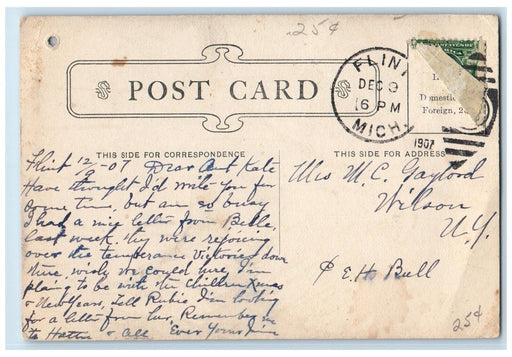 25¢
FLINT
DEC 9
6 PM
MICH.
1907
POST CARD
Domestic
Foreign, 2
THIS SIDE FOR CORRESPONDENCE
THIS SIDE FOR ADDRESS
Flint 12/9-07 Dear Aunt Kate
Have thought I'd write you for
some time, but am so busy
I had a nice letter from Belle,
last week. they were rejoicing
over the temperance victories down
there, wish we could here, I'm
planing to be with the children Xmas
& New Years, Tell Rubie I'm looking
for a letter from her, Remember me
to Hattie & all. Ever Yours
Mrs M.C. Gaylord
Wilson
N.Y.
E H Bull
25¢